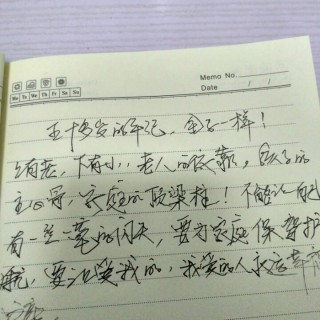 Memo No.
Mo Tu We Th Fr Sa Su
Date / /
五十多岁的年纪，金子一样！
上有老，下有小，老人的依靠，孩子的
主心骨，家庭的顶梁柱！不能让自己
有一丝的闪失，要为家庭保驾护
航，要让爱我的，我爱的人永远幸福